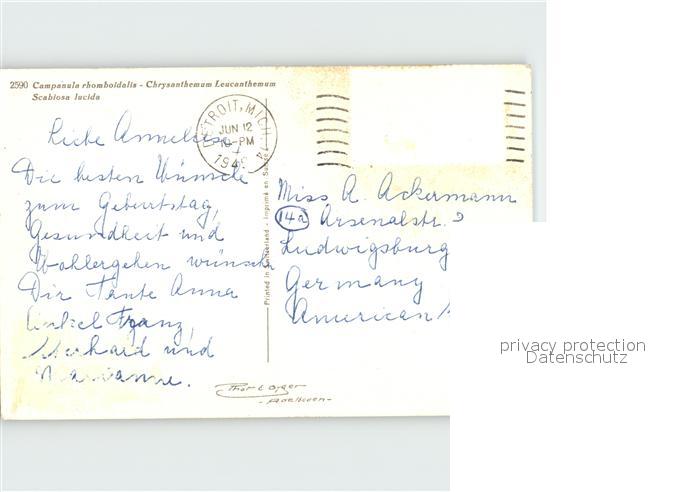 2590 Campanula rhomboidalis - Chrysanthemum Leucanthemum
Scabiosa lucida
DETROIT, MICH.
JUN 12
PM
194
Liebe Anneliese
Die besten Wünsche
zum Geburtstag,
Gesundheit und
Wohlergehen wünschen
Dir Tante Anna
Onkel Franz,
und
Marianne.
Printed in Switzerland - Imprimé en Suisse
Miss A. Ackermann
14a Arsenalstr.
Ludwigsburg
Germany
American
privacy protection
Datenschutz
- Adelboden -